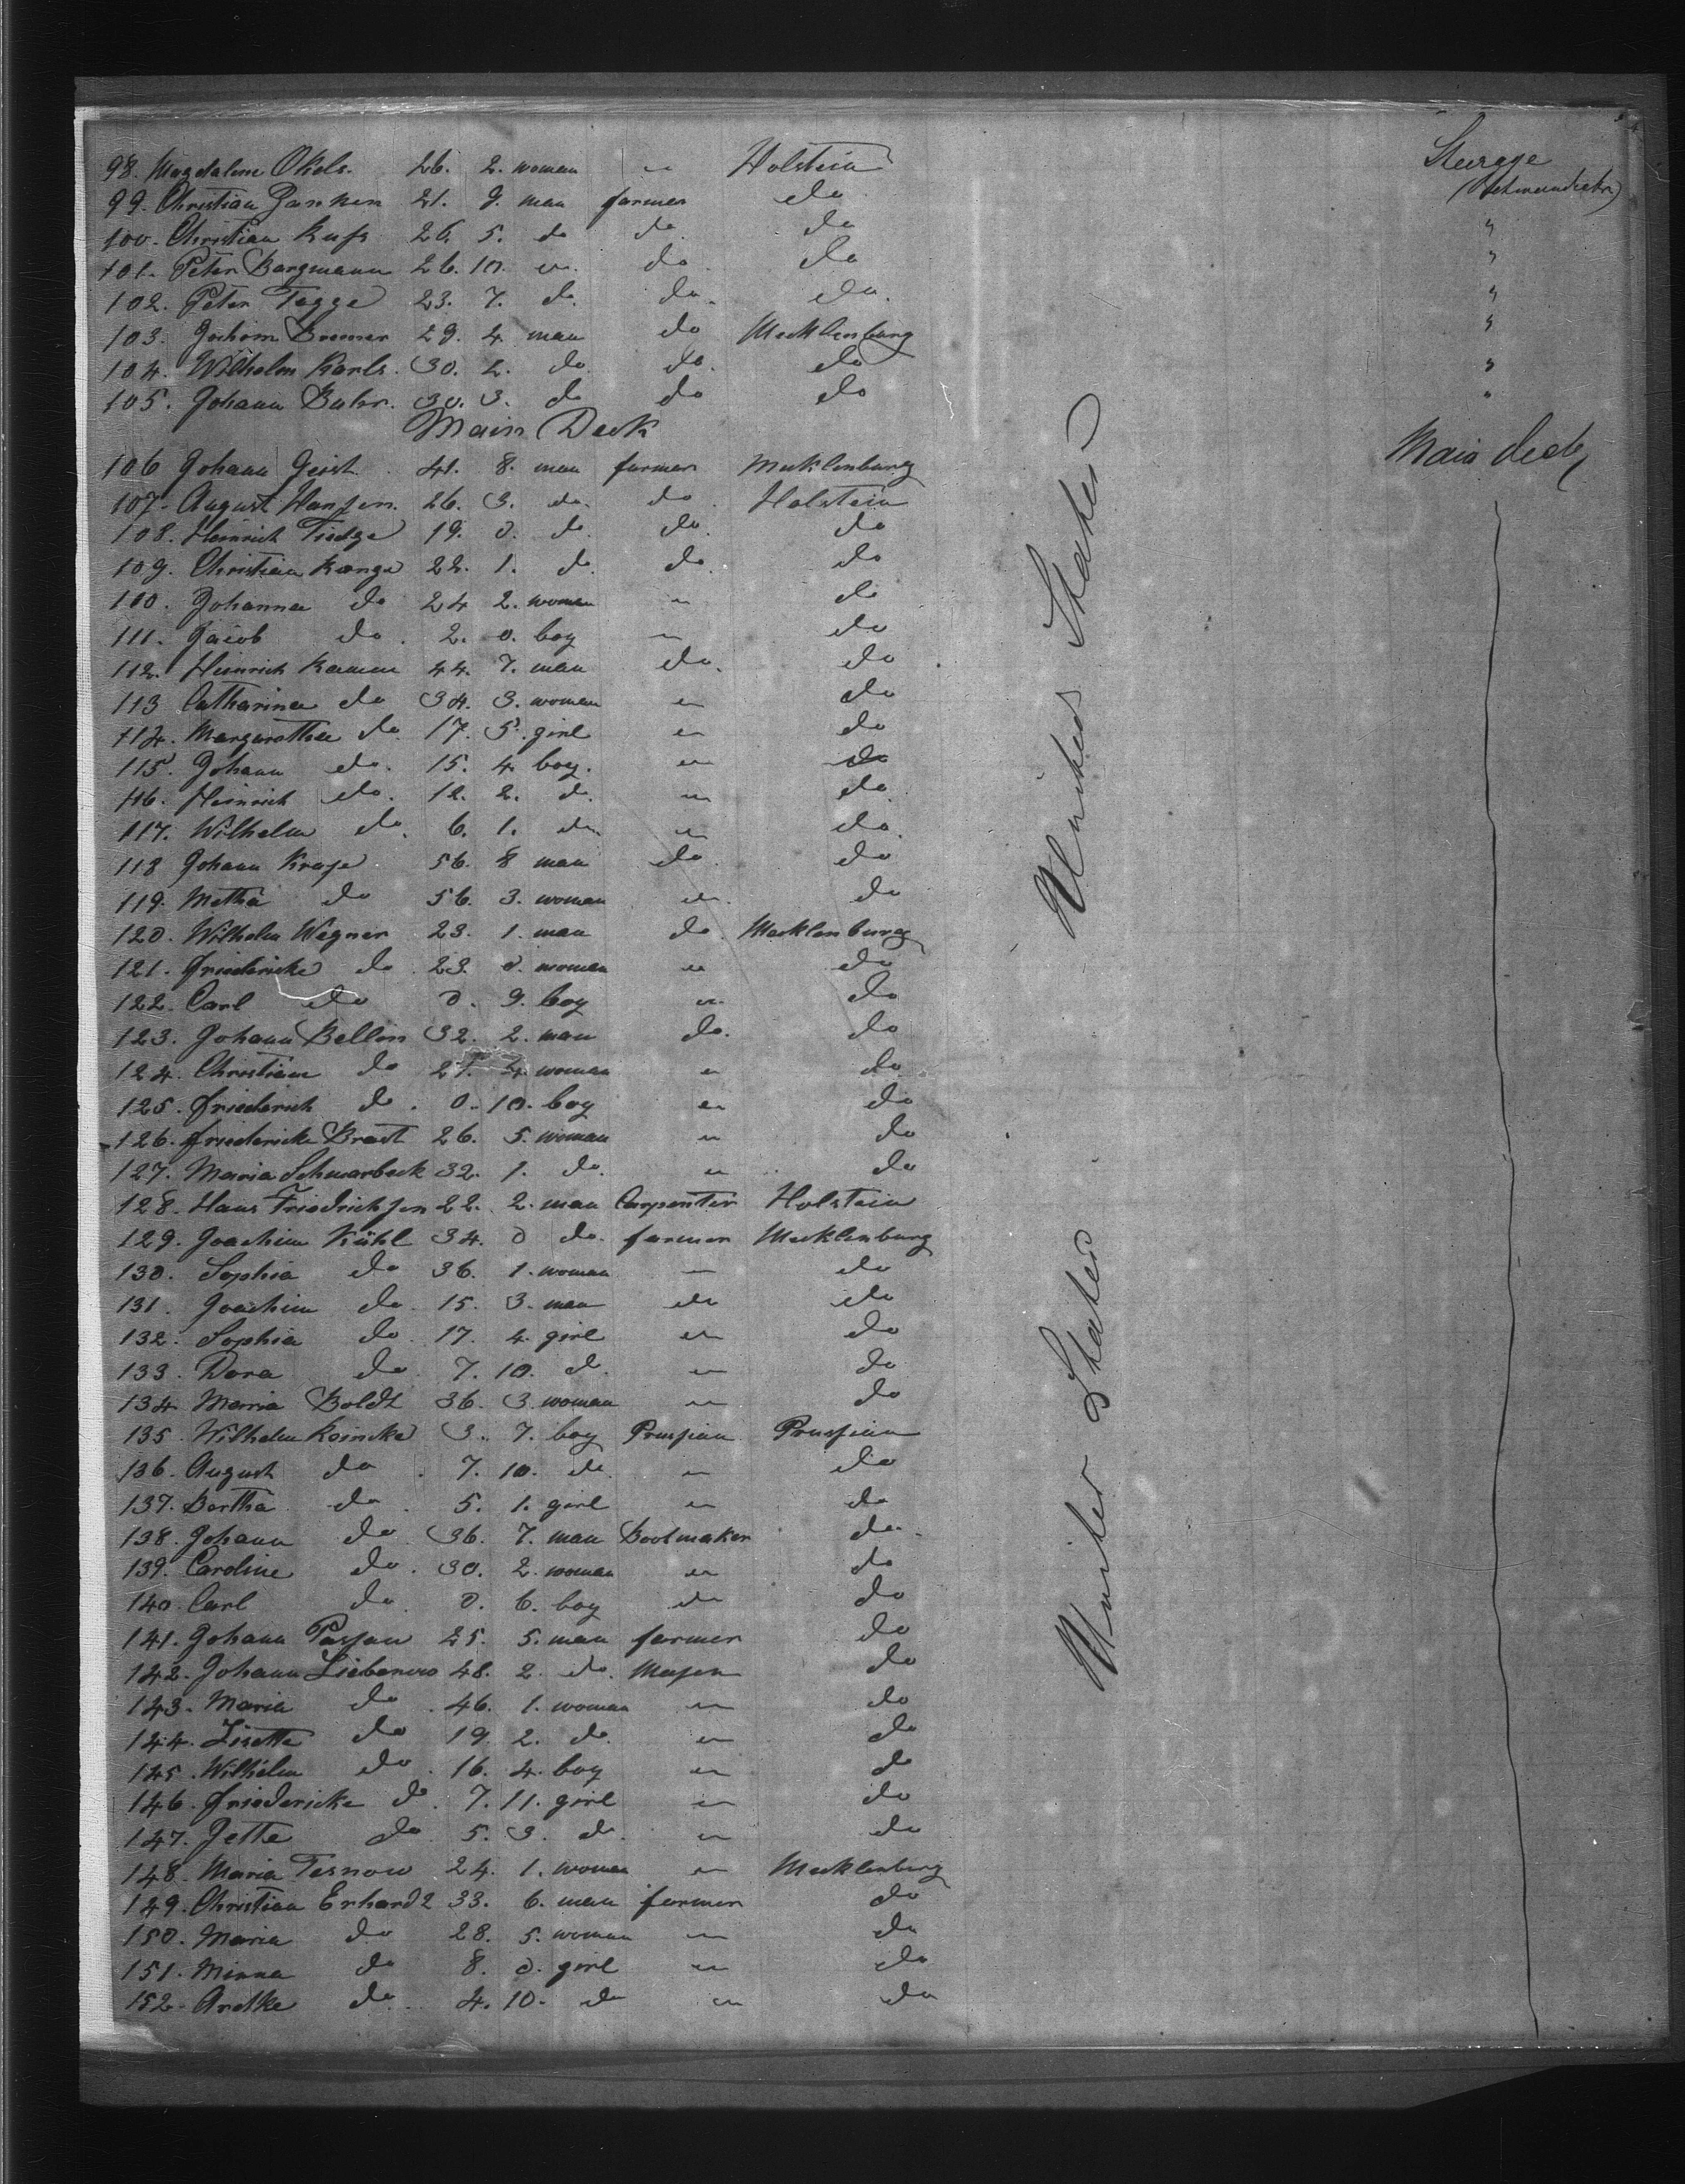 98. Magdalene Okels. 26. 2. woman " Holstein Steerage
99. Christian Panken 21. 9. man farmer do
100. Christian Kufs 26. 5. do do do "
101. Peter Bargmann 26. 10. do do "
102. Peter Tagge 23. 7. do. do. do. "
103. Jochim Bremer 29. 4. man do Mecklenburg "
104. Wilhelm Karls. 30. 2. do. do. do "
105. Johann Buhr. 30. 3. do do do "
Main Deck
106 Johann Geist 41. 8. man farmer Mecklenburg Main deck
107. August Hansen. 26. 3. do. do Holstein
108. Heinrich Tiedge 19. 0. do. do. do
109. Christian Range 22. 1. do. do. do
110. Johanna do 24 2. woman " do
111. Jacob do. 2. 0. boy " do
112. Heinrich Kamm 44. 7. man do. do
113 Catharina do 34. 3. woman " do
114. Margarethea do. 17. 5. girl " do
115. Johann do. 15. 4. boy. " do
116. Heinrich do. 12. 2. do. " do.
117. Wilhelm do. 6. 1. do. " do.
118 Johann Kruse 56. 8 man do. do
119. Metha do 56. 3. woman " do
120. Wilhelm Wegner 23. 1. man do. Mecklenburg
121. Friedericke do. 23. 0. woman " do
122. Carl do 0. 9. boy " do
123. Johann Bellin 32. 2. man do. do
124. Christian do 27. 4 woman " do
125. Friederich do. 0. 10. boy " do
126. Friedericke Brast 26. 5. woman " do
127. Maria Schwarbeck 32. 1. do. " do
128. Hans Friedrichsen 22. 2. man Carpenter Holstein
129. Joachim Kühl 34. 0 do. farmer Mecklenburg
130. Sophia do 36. 1. woman " do
131. Joachim do. 15. 3. man do do
132. Sophia do. 17. 4. girl " do
133. Dora do. 7. 10. do. " do
134. Maria Boldt 36. 3. woman " do
135. Wilhelm Reincke 3. 7. boy Prussian Prussian
136. August do. 7. 10. do. " do
137. Bertha do. 5. 1. girl " do
138. Johann do 36. 7. man Bootmaker do.
139. Caroline do. 30. 2. woman " do
140. Carl do. 0. 6. boy do
141. Johann Passau 25. 5. man farmer do
142. Johann Liebenow 48. 2. do. Mason do
143. Maria do. 46. 1. woman " do
144. Lisette do 19. 2. do. " do
145. Wilhelm do. 16. 4. boy " do
146. Friedericke do. 7. 11. girl " do
147. Jette do. 5. 3. do. " do
148. Maria Tesnow 24. 1. woman " Mecklenburg
149. Christian Erhardt 33. 6. man farmer do
150. Maria do 28. 5. woman " do
151. Minna do 8. 0. girl " do
152. do. 4. 10. do " do
United States
United States